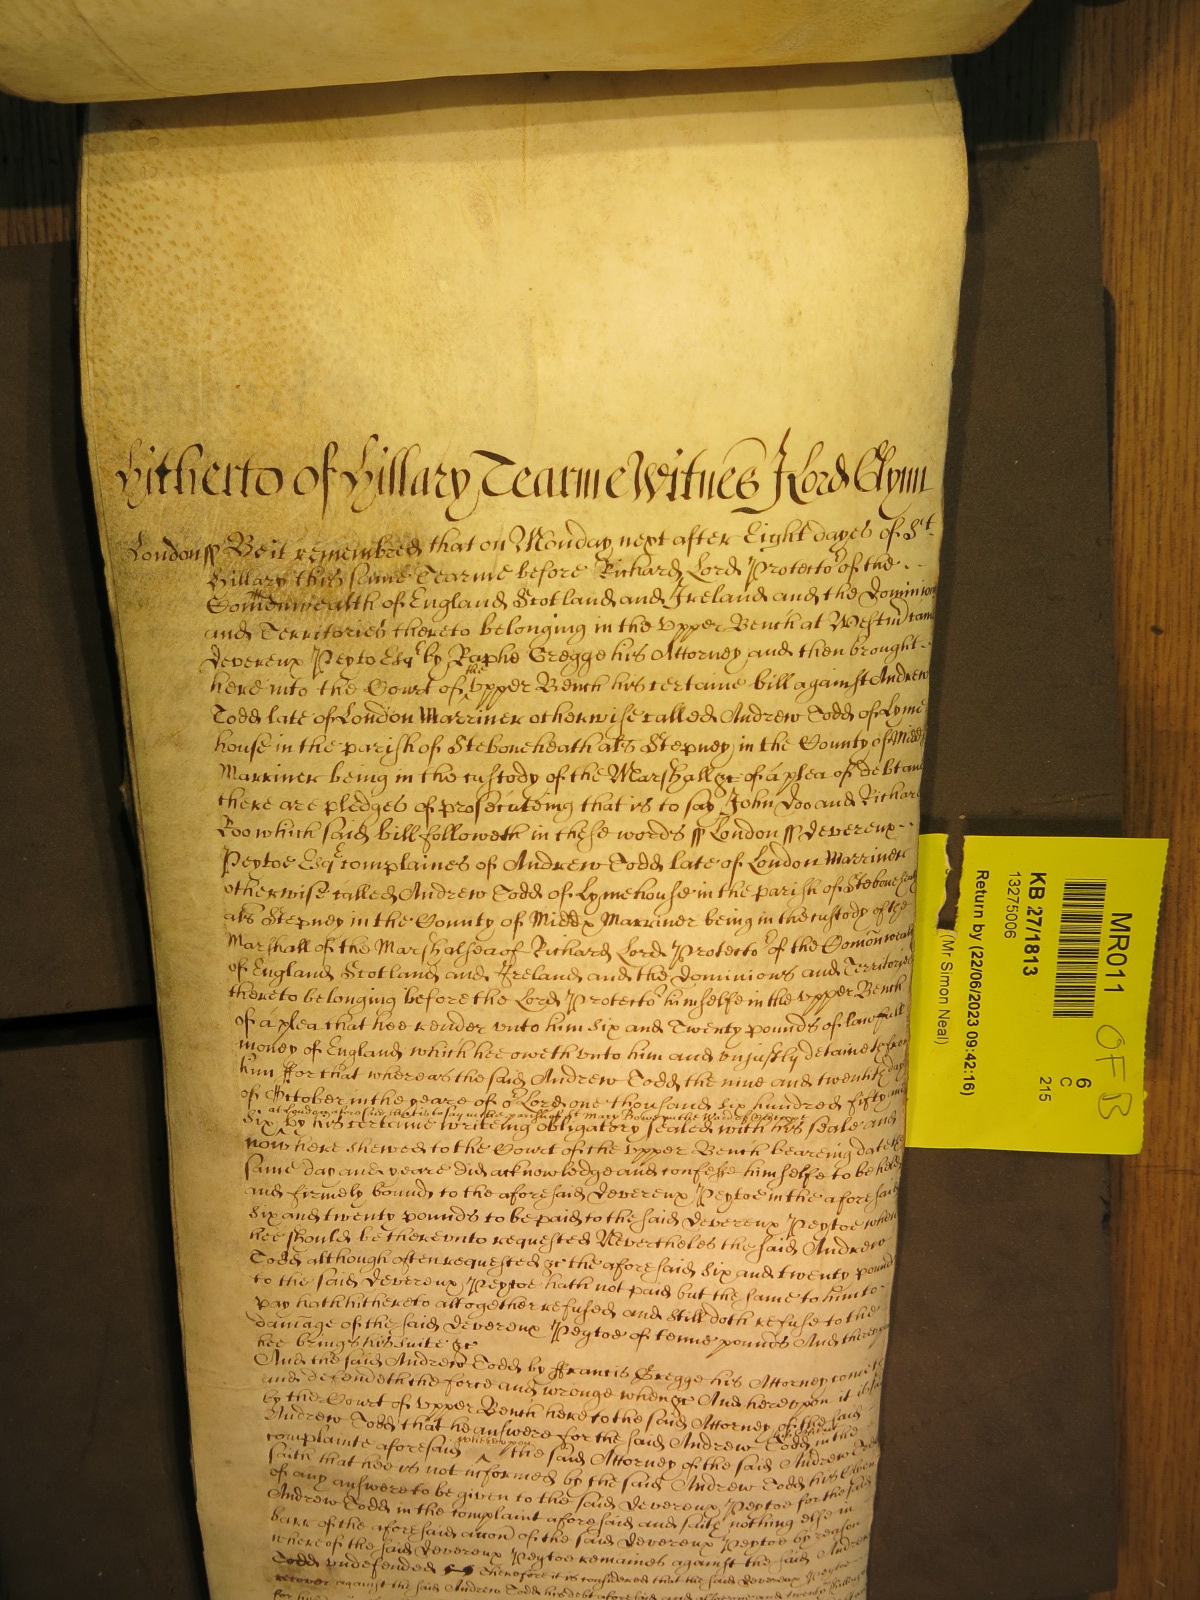 Hitherto of Hillary Tearme Witnes J Lord Glynn
London ss Be it remembred that on Monday next after Eight dayes of St.
Hillary this same Tearme before Richard Lord Protector of the
Comonwealth of England Scotland and Ireland and the Dominions
and Territories thereto belonging in the vpper Bench at Westm came
Devereux Peyto Esqr by Raphe Gregge his Attorney and then brought
here into the Court of the vpper Bench his certaine bill against Andrew
Todd late of London Marriner otherwise called Andrew Todd of Lyme
house in the parish of Steboneheath als Stepney in the County of Midd
Marriner being in the custody of the Marshall &c of a plea of debt and
there are pledges of prosecuteing that is to say John Doo and Richard
Roo which said bill followeth in these words ss London ss Devereux
Peytoe Esqr complaines of Andrew Todd late of London Marriner
otherwise called Andrew Todd of Lymehouse in the parish of Steboneheath
als Stepney in the County of Middx Marriner being in the custody of the
Marshall of the Marshalsea of Richard Lord Protector of the Comonwealth
of England Scotland and Ireland and the Dominions and Territories
thereto belonging before the Lord Protector himselfe in the vpper Bench
of a plea that hee render vnto him six and Twenty pounds of lawfull
money of England which hee oweth vnto him and vnjustly detaineth from
him ffor that whereas the said Andrew Todd the nine and twentith day
of October in the yeare of or Lord one thousand six hundred fifty and
six at London aforesaid that is to say in the parish of St Mary Bowe in the Ward of
by his certaine writeing obligatory sealed with his seale and
now here shewed to the Court of the vpper Bench beareing date the
same day and yeare did acknowledge and confesse himselfe to be held
and firmely bound to the aforesaid Devereux Peytoe in the aforesaid
six and twenty pounds to be paid to the said Devereux Peytoe when
hee should be therevnto requested Nevertheles the said Andrew
Todd although often requested &c the aforesaid six and twenty pounds
to the said Devereux Peytoe hath not paid but the same to him to
pay hath hithereto altogether refused and still doth refuse to the
damage of the said Devereux Peytoe of tenne pounds And therevpon
hee brings his suite &c
And the said Andrew Todd by ffrancis Gregge his Attorney cometh
and defendeth the force and wronge when &c And herevpon it is said
by the Court of vpper Bench here to the said Attorney of the said
Andrew Todd that he answere for the said Andrew Todd in the
complainte aforesaid wherevpon the said Attorney of the said Andrew Todd
saith that hee is not informed by the said Andrew Todd his Client
of any answere to be given to the said Devereux Peytoe for the said
Andrew Todd in the complaint aforesaid and saith nothing else in
barr of the aforesaid accon of the said Devereux Peytoe by reason
where of the said Devereux Peytoe remaines against the said Andrew
Todd vndefended therefore it is considered that the said Devereux Peytoe
recover against the said Andrew Todd his debt aforesaid and
MR011
6
C
215
KB 27/1813
13275006
Return by (22/06/2023 09:42:16)
(Mr Simon Neal)
OF B